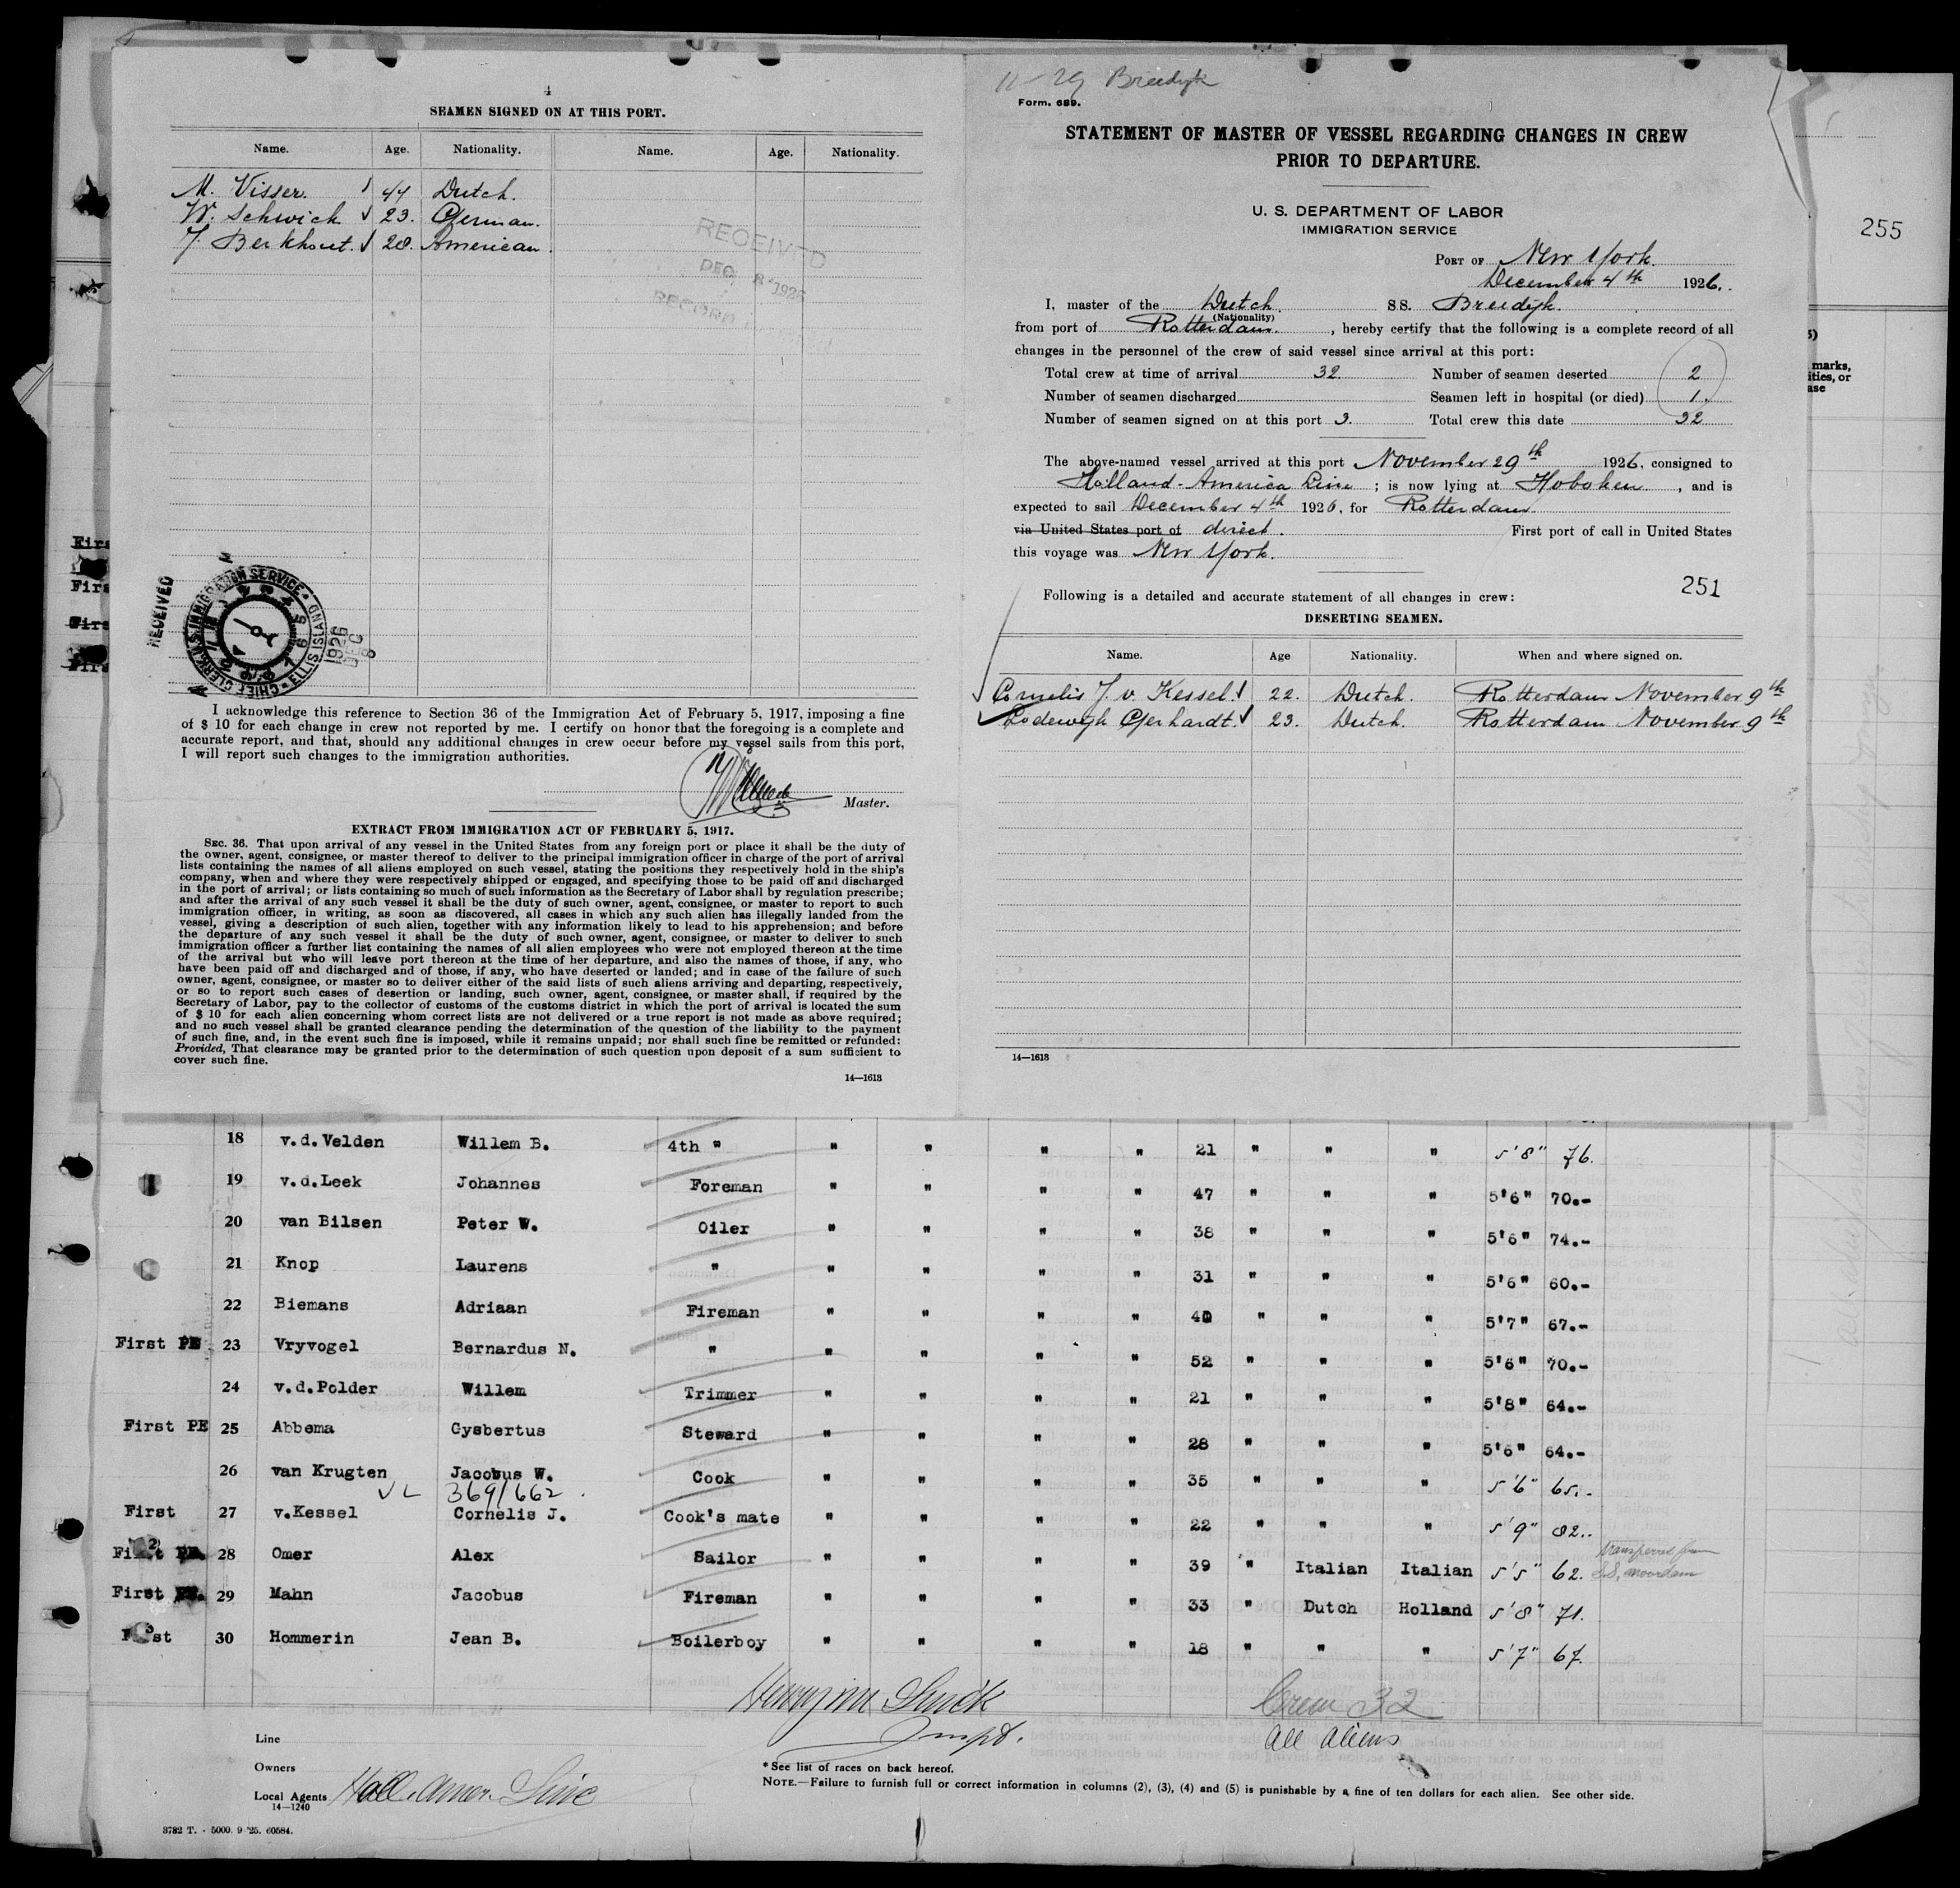 4
SEAMEN SIGNED ON AT THIS PORT.
Name. Age. Nationality. Name. Age. Nationality.
M. Visser. 44 Dutch.
W. Schwick 23. German.
J. Berkhout. 28. American.
RECEIVED
DEC 8 1926
RECORD
RECEIVED
CHIEF CLERK U.S. IMMIGRATION SERVICE ELLIS ISLAND
1926 DEC 8
I acknowledge this reference to Section 36 of the Immigration Act of February 5, 1917, imposing a fine
of $ 10 for each change in crew not reported by me. I certify on honor that the foregoing is a complete and
accurate report, and that, should any additional changes in crew occur before my vessel sails from this port,
I will report such changes to the immigration authorities.
Master.
EXTRACT FROM IMMIGRATION ACT OF FEBRUARY 5, 1917.
SEC. 36. That upon arrival of any vessel in the United States from any foreign port or place it shall be the duty of
the owner, agent, consignee, or master thereof to deliver to the principal immigration officer in charge of the port of arrival
lists containing the names of all aliens employed on such vessel, stating the positions they respectively hold in the ship's
company, when and where they were respectively shipped or engaged, and specifying those to be paid off and discharged
in the port of arrival; or lists containing so much of such information as the Secretary of Labor shall by regulation prescribe;
and after the arrival of any such vessel it shall be the duty of such owner, agent, consignee, or master to report to such
immigration officer, in writing, as soon as discovered, all cases in which any such alien has illegally landed from the
vessel, giving a description of such alien, together with any information likely to lead to his apprehension; and before
the departure of any such vessel it shall be the duty of such owner, agent, consignee, or master to deliver to such
immigration officer a further list containing the names of all alien employees who were not employed thereon at the time
of the arrival but who will leave port thereon at the time of her departure, and also the names of those, if any, who
have been paid off and discharged and of those, if any, who have deserted or landed; and in case of the failure of such
owner, agent, consignee, or master so to deliver either of the said lists of such aliens arriving and departing, respectively,
or so to report such cases of desertion or landing, such owner, agent, consignee, or master shall, if required by the
Secretary of Labor, pay to the collector of customs of the customs district in which the port of arrival is located the sum
of $ 10 for each alien concerning whom correct lists are not delivered or a true report is not made as above required;
and no such vessel shall be granted clearance pending the determination of the question of the liability to the payment
of such fine, and, in the event such fine is imposed, while it remains unpaid; nor shall such fine be remitted or refunded:
Provided, That clearance may be granted prior to the determination of such question upon deposit of a sum sufficient to
cover such fine.
14—1613
11-29 Breedyk
Form. 689.
STATEMENT OF MASTER OF VESSEL REGARDING CHANGES IN CREW
PRIOR TO DEPARTURE.
U. S. DEPARTMENT OF LABOR
IMMIGRATION SERVICE
PORT OF New York.
December 4th 1926.
I, master of the Dutch SS. Breedijk.
(Nationality)
from port of Rotterdam. , hereby certify that the following is a complete record of all
changes in the personnel of the crew of said vessel since arrival at this port:
Total crew at time of arrival 32. Number of seamen deserted 2
Number of seamen discharged Seamen left in hospital (or died) 1.
Number of seamen signed on at this port 3. Total crew this date 32
The above-named vessel arrived at this port November 29th 1926, consigned to
Holland-America Line ; is now lying at Hoboken , and is
expected to sail December 4th 1926, for Rotterdam
via United States port of direct. First port of call in United States
this voyage was New York.
251
Following is a detailed and accurate statement of all changes in crew:
DESERTING SEAMEN.
Name. Age Nationality. When and where signed on.
Cornelis J. v Kessel. 22. Dutch. Rotterdam November 9th
Lodewyk Gerhardt. 23. Dutch. Rotterdam November 9th
14—1613
255
marks,
ities, or
ase
18 v.d.Velden Willem B. 4th " " " " " 21 " " " 5'8" 76.
19 v.d.Leek Johannes Foreman " " " " 47 " " " 5'6" 70.-
20 van Bilsen Peter W. Oiler " " " " 38 " " " 5'6" 74.-
21 Knop Laurens " " " " " 31 " " " 5'6" 60.-
22 Biemans Adriaan Fireman " " " " 40 " " " 5'7" 67.-
First PE 23 Vryvogel Bernardus N. " " " " " 52 " " " 5'6" 70.-
24 v.d.Polder Willem Trimmer " " " " 21 " " " 5'8" 64.-
First PE 25 Abbema Gysbertus Steward " " " " 28 " " " 5'6" 64.-
26 van Krugten Jacobus W. Cook " " " " 35 " " " 5'6" 65.-
369/662
First 27 v.Kessel Cornelis J. Cook's mate " " " " 22 " " " 5'9" 82..
First 28 Omer Alex Sailor " " " " 39 " Italian Italian 5'5" 62. transferred from S.S. Noordam
First 29 Mahn Jacobus Fireman " " " " 33 " Dutch Holland 5'8" 71.
First 30 Hommerin Jean B. Boilerboy " " " " 18 " " " 5'7" 67.
Crew 32
all aliens
Line
Owners
Local Agents Holl. Amer. Line
14—1240
* See list of races on back hereof.
NOTE.—Failure to furnish full or correct information in columns (2), (3), (4) and (5) is punishable by a fine of ten dollars for each alien. See other side.
3782 T. - 5000. 9-'25. 60584.